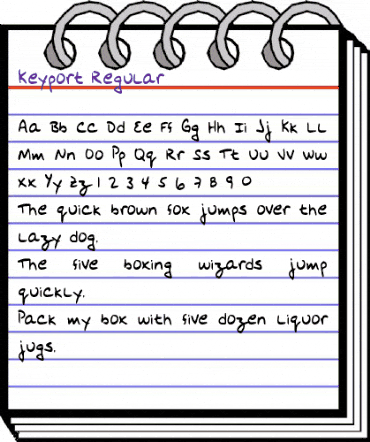 Keyport Regular
Aa Bb Cc Dd Ee Ff Gg Hh Ii Jj Kk LL
Mm Nn Oo Pp Qq Rr Ss Tt Uu Vv Ww
Xx Yy Zz 1 2 3 4 5 6 7 8 9 0
The quick brown fox jumps over the
Lazy dog.
The five boxing wizards jump
quickLy.
Pack my box with five dozen Liquor
jugs.